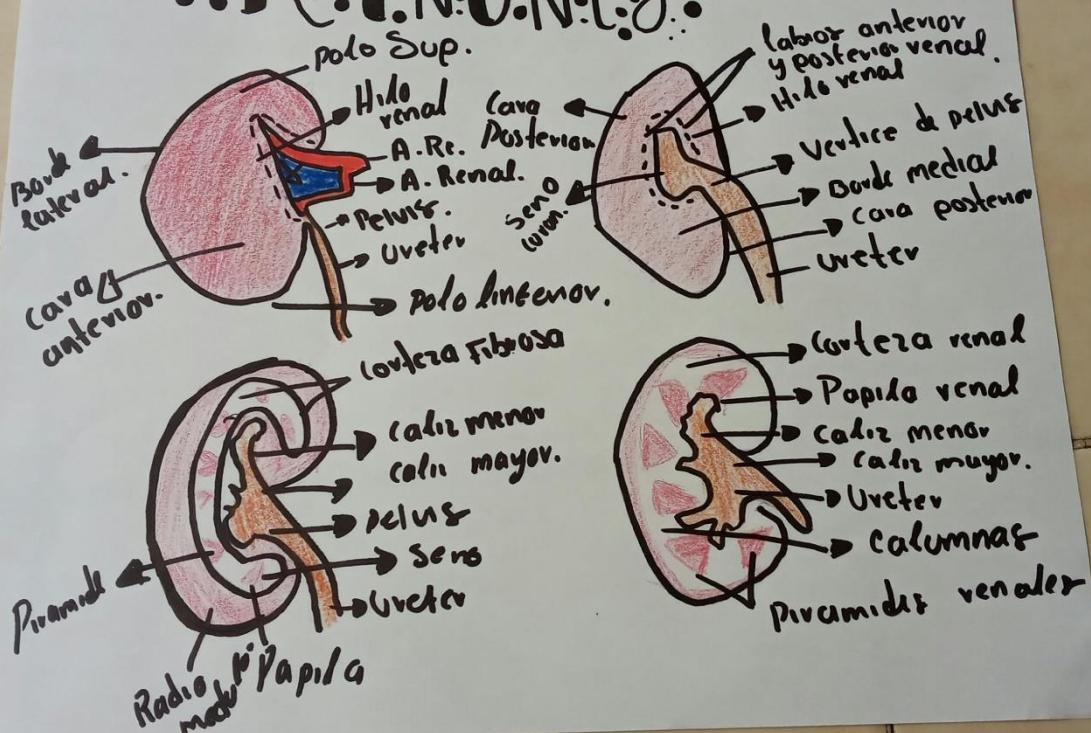 RIÑONES.
Polo Sup.
Hilo
renal
A.Re.
A. Renal.
Pelvis.
Ureter
Polo Iinferior.
Borde
lateral.
Cara
anterior.
labios anterior
y posterior renal.
Hilo renal
Cara
Posterior
Seno
Vertice de pelvis
Borde medial
Cara posterior
Ureter
Corteza Fibrosa
Caliz menor
Caliz mayor.
Pelvis
Seno
Ureter
Piramide
Radio
Papila
Corteza renal
Papila renal
Caliz menor
Caliz mayor.
Ureter
Calumnas
Piramides renales